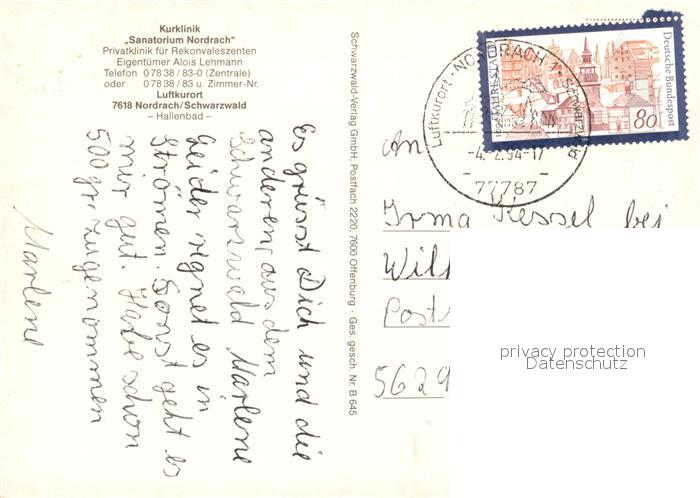 Kurklinik
„Sanatorium Nordrach"
Privatklinik für Rekonvaleszenten
Eigentümer Alois Lehmann
Telefon 0 78 38 / 83-0 (Zentrale)
oder 0 78 38 / 83 u. Zimmer-Nr.
Luftkurort
7618 Nordrach/Schwarzwald
– Hallenbad –
Es grüsst Dich und die
anderen, aus dem
Schwarzwald Marlene
Leider regnet es in
Strömen. Sonst geht es
mir gut. Habe schon
500 gr zugenommen
Marlene
Schwarzwald-Verlag GmbH, Postfach 2220, 7600 Offenburg · Ges. gesch. Nr. B 645
Deutsche Bundespost
80
Luftkurort · NORDRACH 1, Schwarzw
-4.2.94-17
77787
An
Irma Kessel bei
Will
Post
5629
privacy protection
Datenschutz